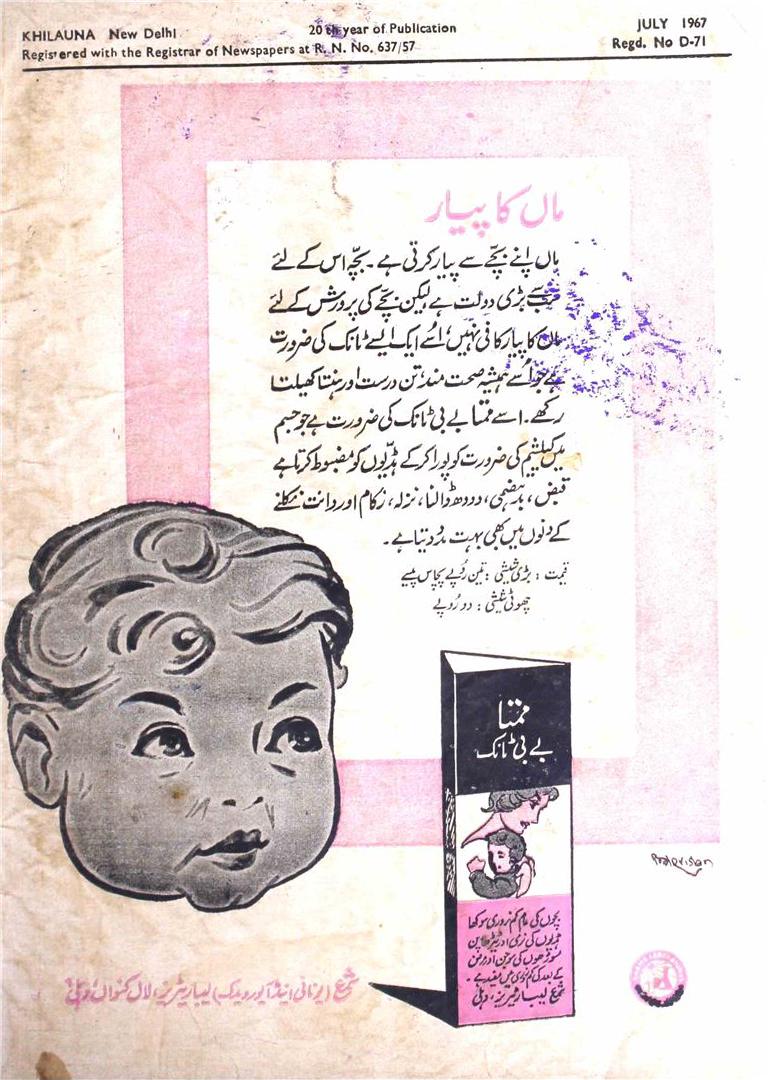 KHILAUNA New Delhi
20th year of Publication
JULY 1967
Registered with the Registrar of Newspapers at R. N. No. 637/57
Regd. No D-71
ماں کا پیار
ماں اپنے بچّے سے پیار کرتی ہے۔ بچّہ اس کے لئے
سب سے بڑی دولت ہے لیکن بچّے کی پرورش کے لئے
ماں کا پیار کافی نہیں، اُسے ایک ایسے ٹانک کی ضرورت
ہے جو اُسے ہمیشہ صحت مند، تن درست اور ہنستا کھیلتا
رکھے۔ اسے ممتا بے بی ٹانک کی ضرورت ہے جو جسم
میں کیلشیم کی ضرورت کو پورا کرکے ہڈیوں کو مضبوط کرتا ہے
قبض، بدہضمی، دودھ ڈالنا، نزلہ، زکام اور دانت نکلنے
کے دنوں میں بھی بہت مدد دیتا ہے۔
قیمت : بڑی شیشی : تین روپے پچاس پیسے
چھوٹی شیشی : دو روپے
ممتا
بے بی ٹانک
بچوں کی عام کمزوری سوکھا
ہڈیوں کی نرمی اور ٹیڑھا پن
مسوڑھوں کی سوجن اور مرض
کے بعد کی کمزوری میں مفید ہے۔
شمع لیباریٹریز، دہلی
شمع (یونانی اینڈ آیورویدک) لیباریٹریز، لال کنواں، دہلی